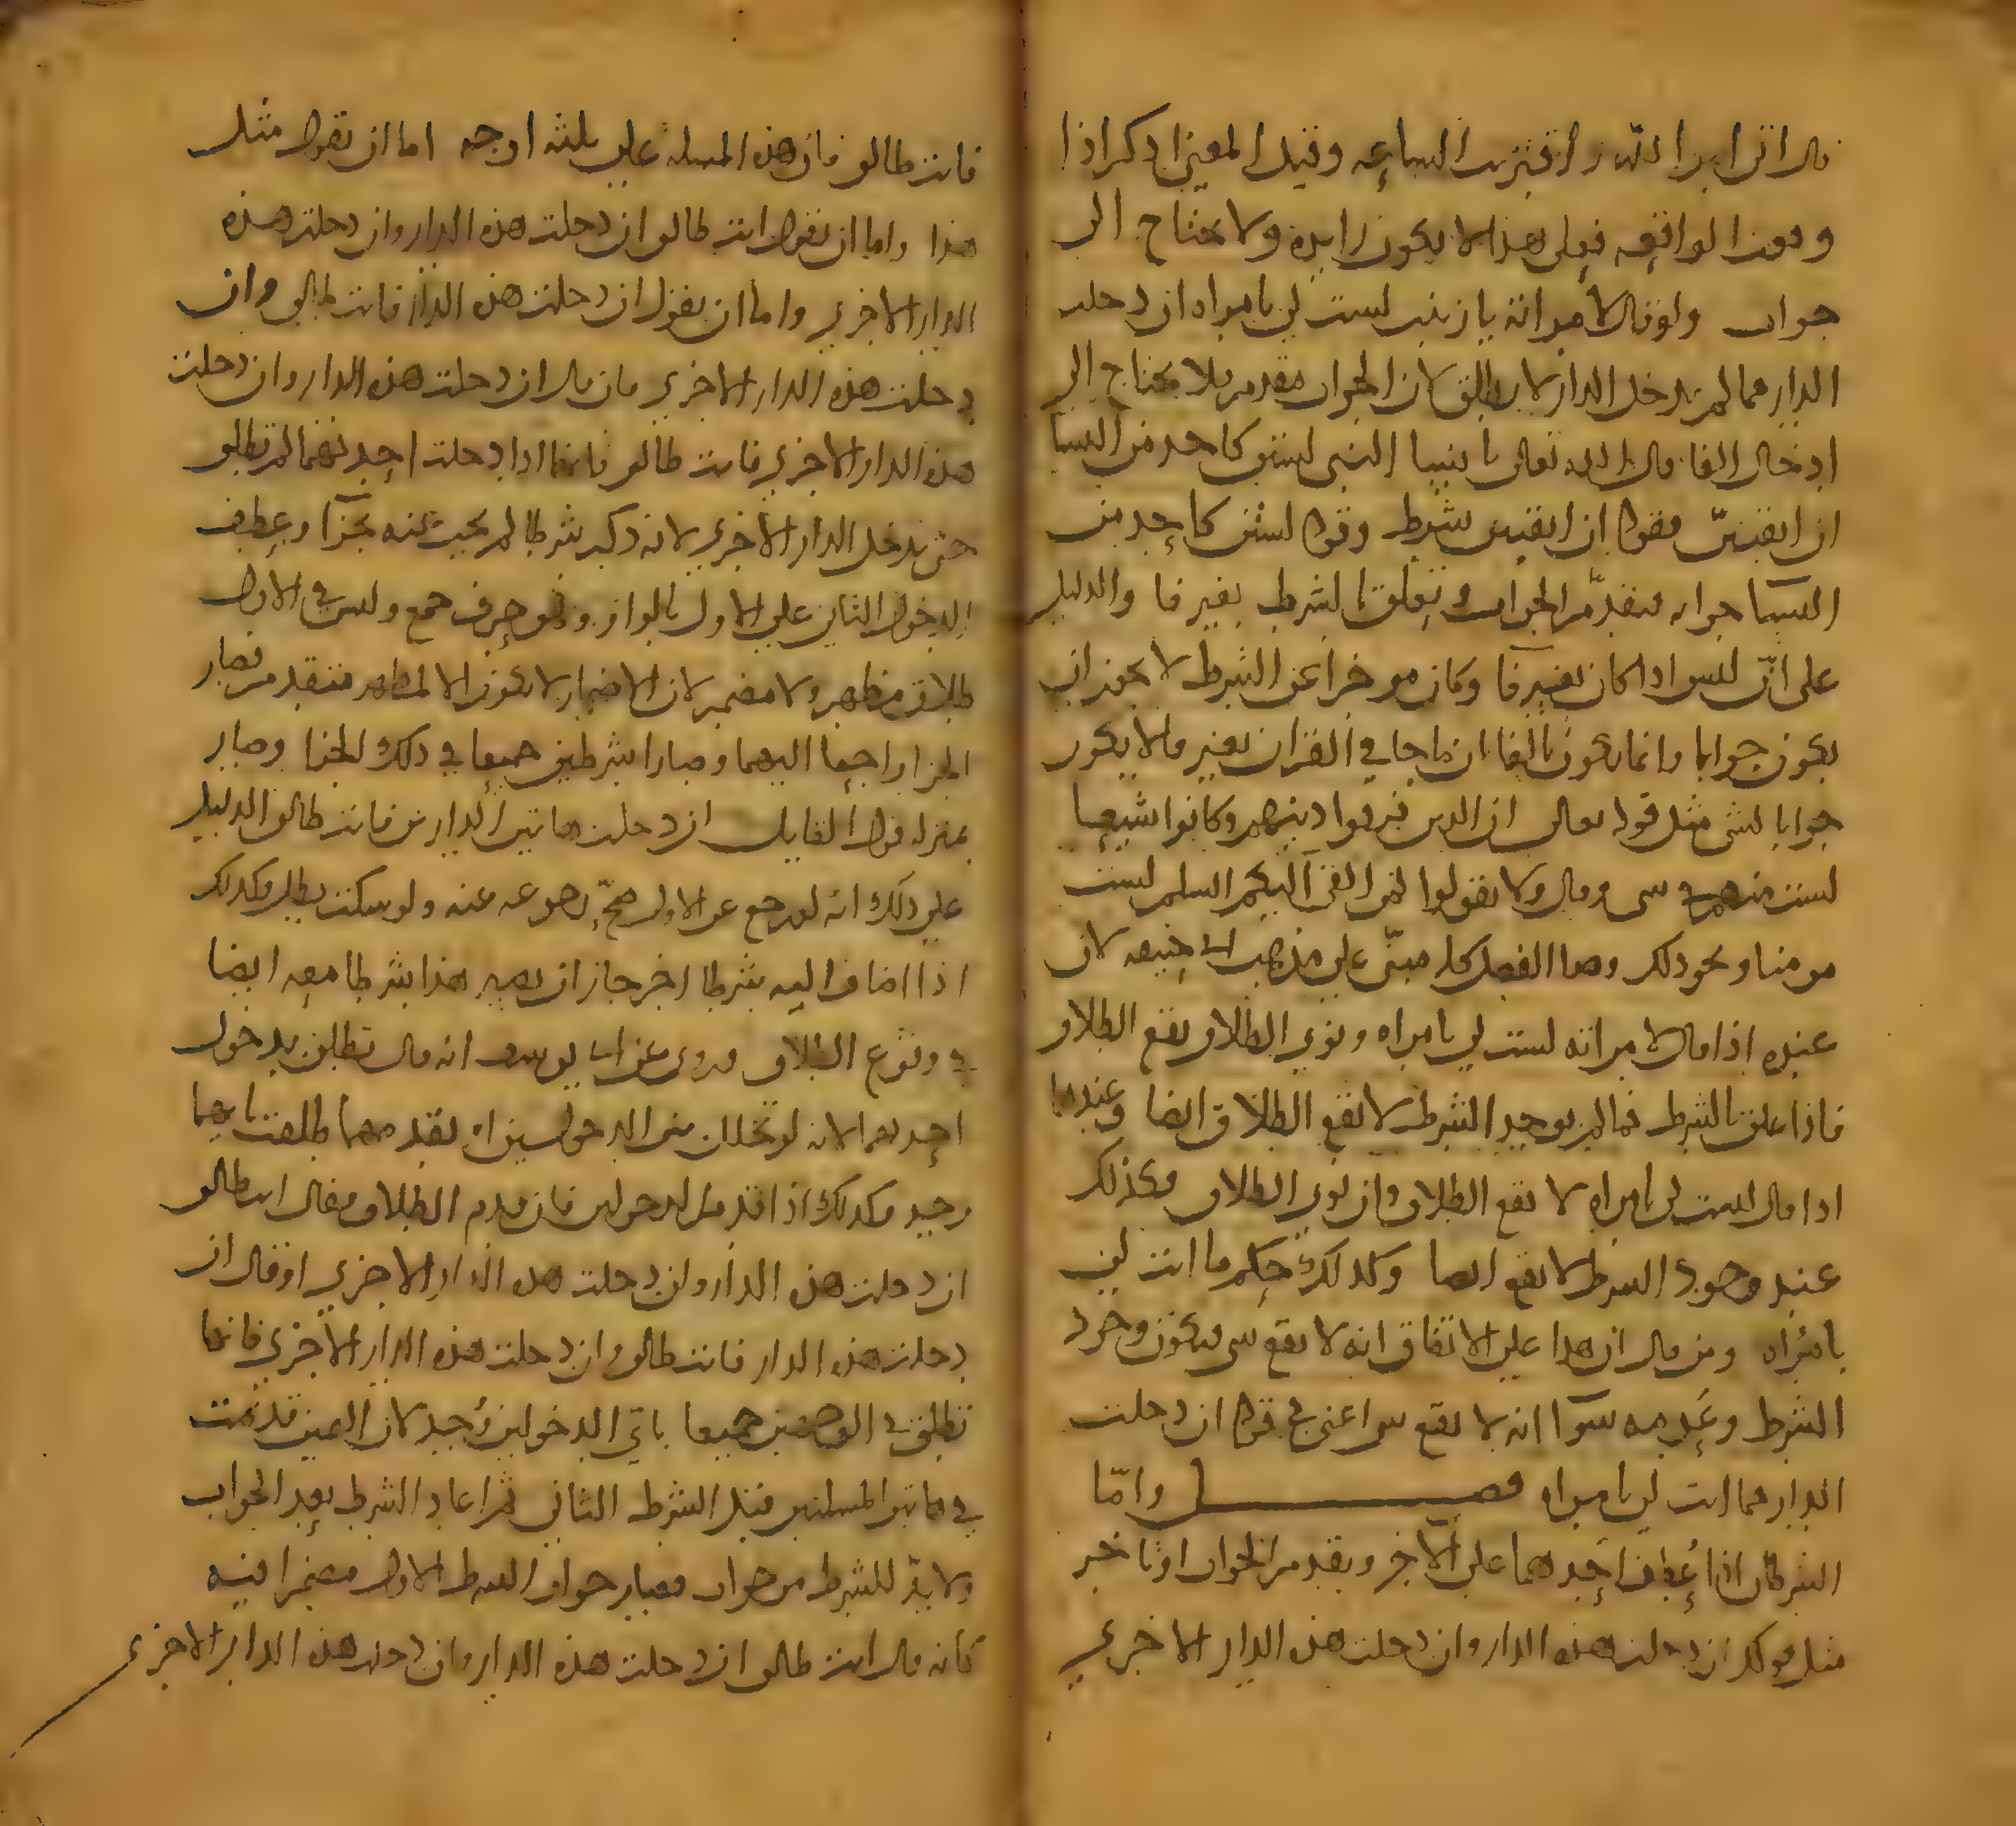 قال اتى امر الله و اقتربت الساعه وقيل المعنى اذكر اذا
وقعت الواقعه فعلى هذا لا يكون زايده ولا يحتاج الى
جواب ولو قال لامراته يا زينب لست لي بامراه ان دخلت
الدار فما لم تدخل الدار لا يطلق لان الجواب مقدم فلا يحتاج الى
ادخال الفا قال الله تعالى يا نسا النبي لستن كاحد من النسا
ان اتقيتن فقوله ان اتقيتن شرط وقوله لستن كاحد من
النسا جوابه فتقدم الجواب وتعلق بالشرط بغير فا والدليل
على ان ليس اذا كان بغير فا وكان موخرا عن الشرط لا يجوز ان
يكون جوابا وانما يكون بالفا ان ما جا في القران بغير فا لا يكون
جوابا لشي مثل قوله تعالى ان الذين فرقوا دينهم وكانوا شيعا
لست منهم في شي وقال ولا تقولوا لمن القى اليكم السلم لست
مومنا ونحو ذلك وهذا الفصل كله مبني على مذهب ابي حنيفه لان
عنده اذا قال لامراته لست لي بامراه ونوى الطلاق يقع الطلاق
فاذا علق بالشرط فما لم يوجد الشرط لا يقع الطلاق ايضا وعندهما
اذا قال لست لي بامراه لا يقع الطلاق وان نوى الطلاق فكذلك
عند وجود الشرط لا يقع ايضا وكذلك حكم ما انت لي
بامراه ومن قال ان هذا على الاتفاق انه لا يقع شي فيكون وجود
الشرط وعدمه سوآ انه لا يقع شي اعني في قوله ان دخلت
الدار فما انت لي بامراه فصل واما
الشرطان اذا عطف احدهما على الاخر وتقدم الجواب او تاخر
مثل قولك ان دخلت هذه الدار وان دخلت هذه الدار الاخرى
فانت طالق فان هذه المسله على ثلثه اوجه اما ان تقول مثل
هذا واما ان تقول انت طالق ان دخلت هذه الدار وان دخلت هذه
الدار الاخرى واما ان يقول ان دخلت هذه الدار فانت طالق وان
دخلت هذه الدار الاخرى فان قال ان دخلت هذه الدار وان دخلت
هذه الدار الاخرى فانت طالق فانها اذا دخلت احدهما لم تطلق
حتى تدخل الدار الاخرى لانه ذكر شرطا لم يجب عنه بجزآ وعطف
الدخول الثاني على الاول بالواو وهو حرف جمع وليس في الاول
طلاق مظهر ولا مضمر لان الاضمار لا يكون الا لمظهر متقدم فصار
الجزا راجعا اليهما وصارا شرطين جميعا في ذلك الجزا وصار
بمنزله قول القايل ان دخلت هاتين الدارين فانت طالق الدليل
على ذلك انه لو رجع عن الاول صح رجوعه عنه ولو سكت بطل وكذلك
اذا اضاف اليه شرطا اخر جاز ان يصير هذا شرطا معه ايضا
في وقوع الطلاق وروى عن ابي يوسف انه قال تطلق بدخول
احدهما لانه لو تخلل بين الدخولين او تقدمهما طلقت بايهما
وجد فكذلك اذا تقدم الدخولين فان قدم الطلاق فقال انت طالق
ان دخلت هذه الدار وان دخلت هذه الدار الاخرى او قال ان
دخلت هذه الدار فانت طالق وان دخلت هذه الدار الاخرى فانها
تطلق في الوجهين جميعا باي الدخولين وجد لان اليمين قد تمت
في هاتين المسلتين قبل الشرط الثاني ثم اعاد الشرط بعد الجواب
ولا بد للشرط من جواب فصار جواب الشرط الاول مضمرا فيه
كانه قال انت طالق ان دخلت هذه الدار وان دخلت هذه الدار الاخرى